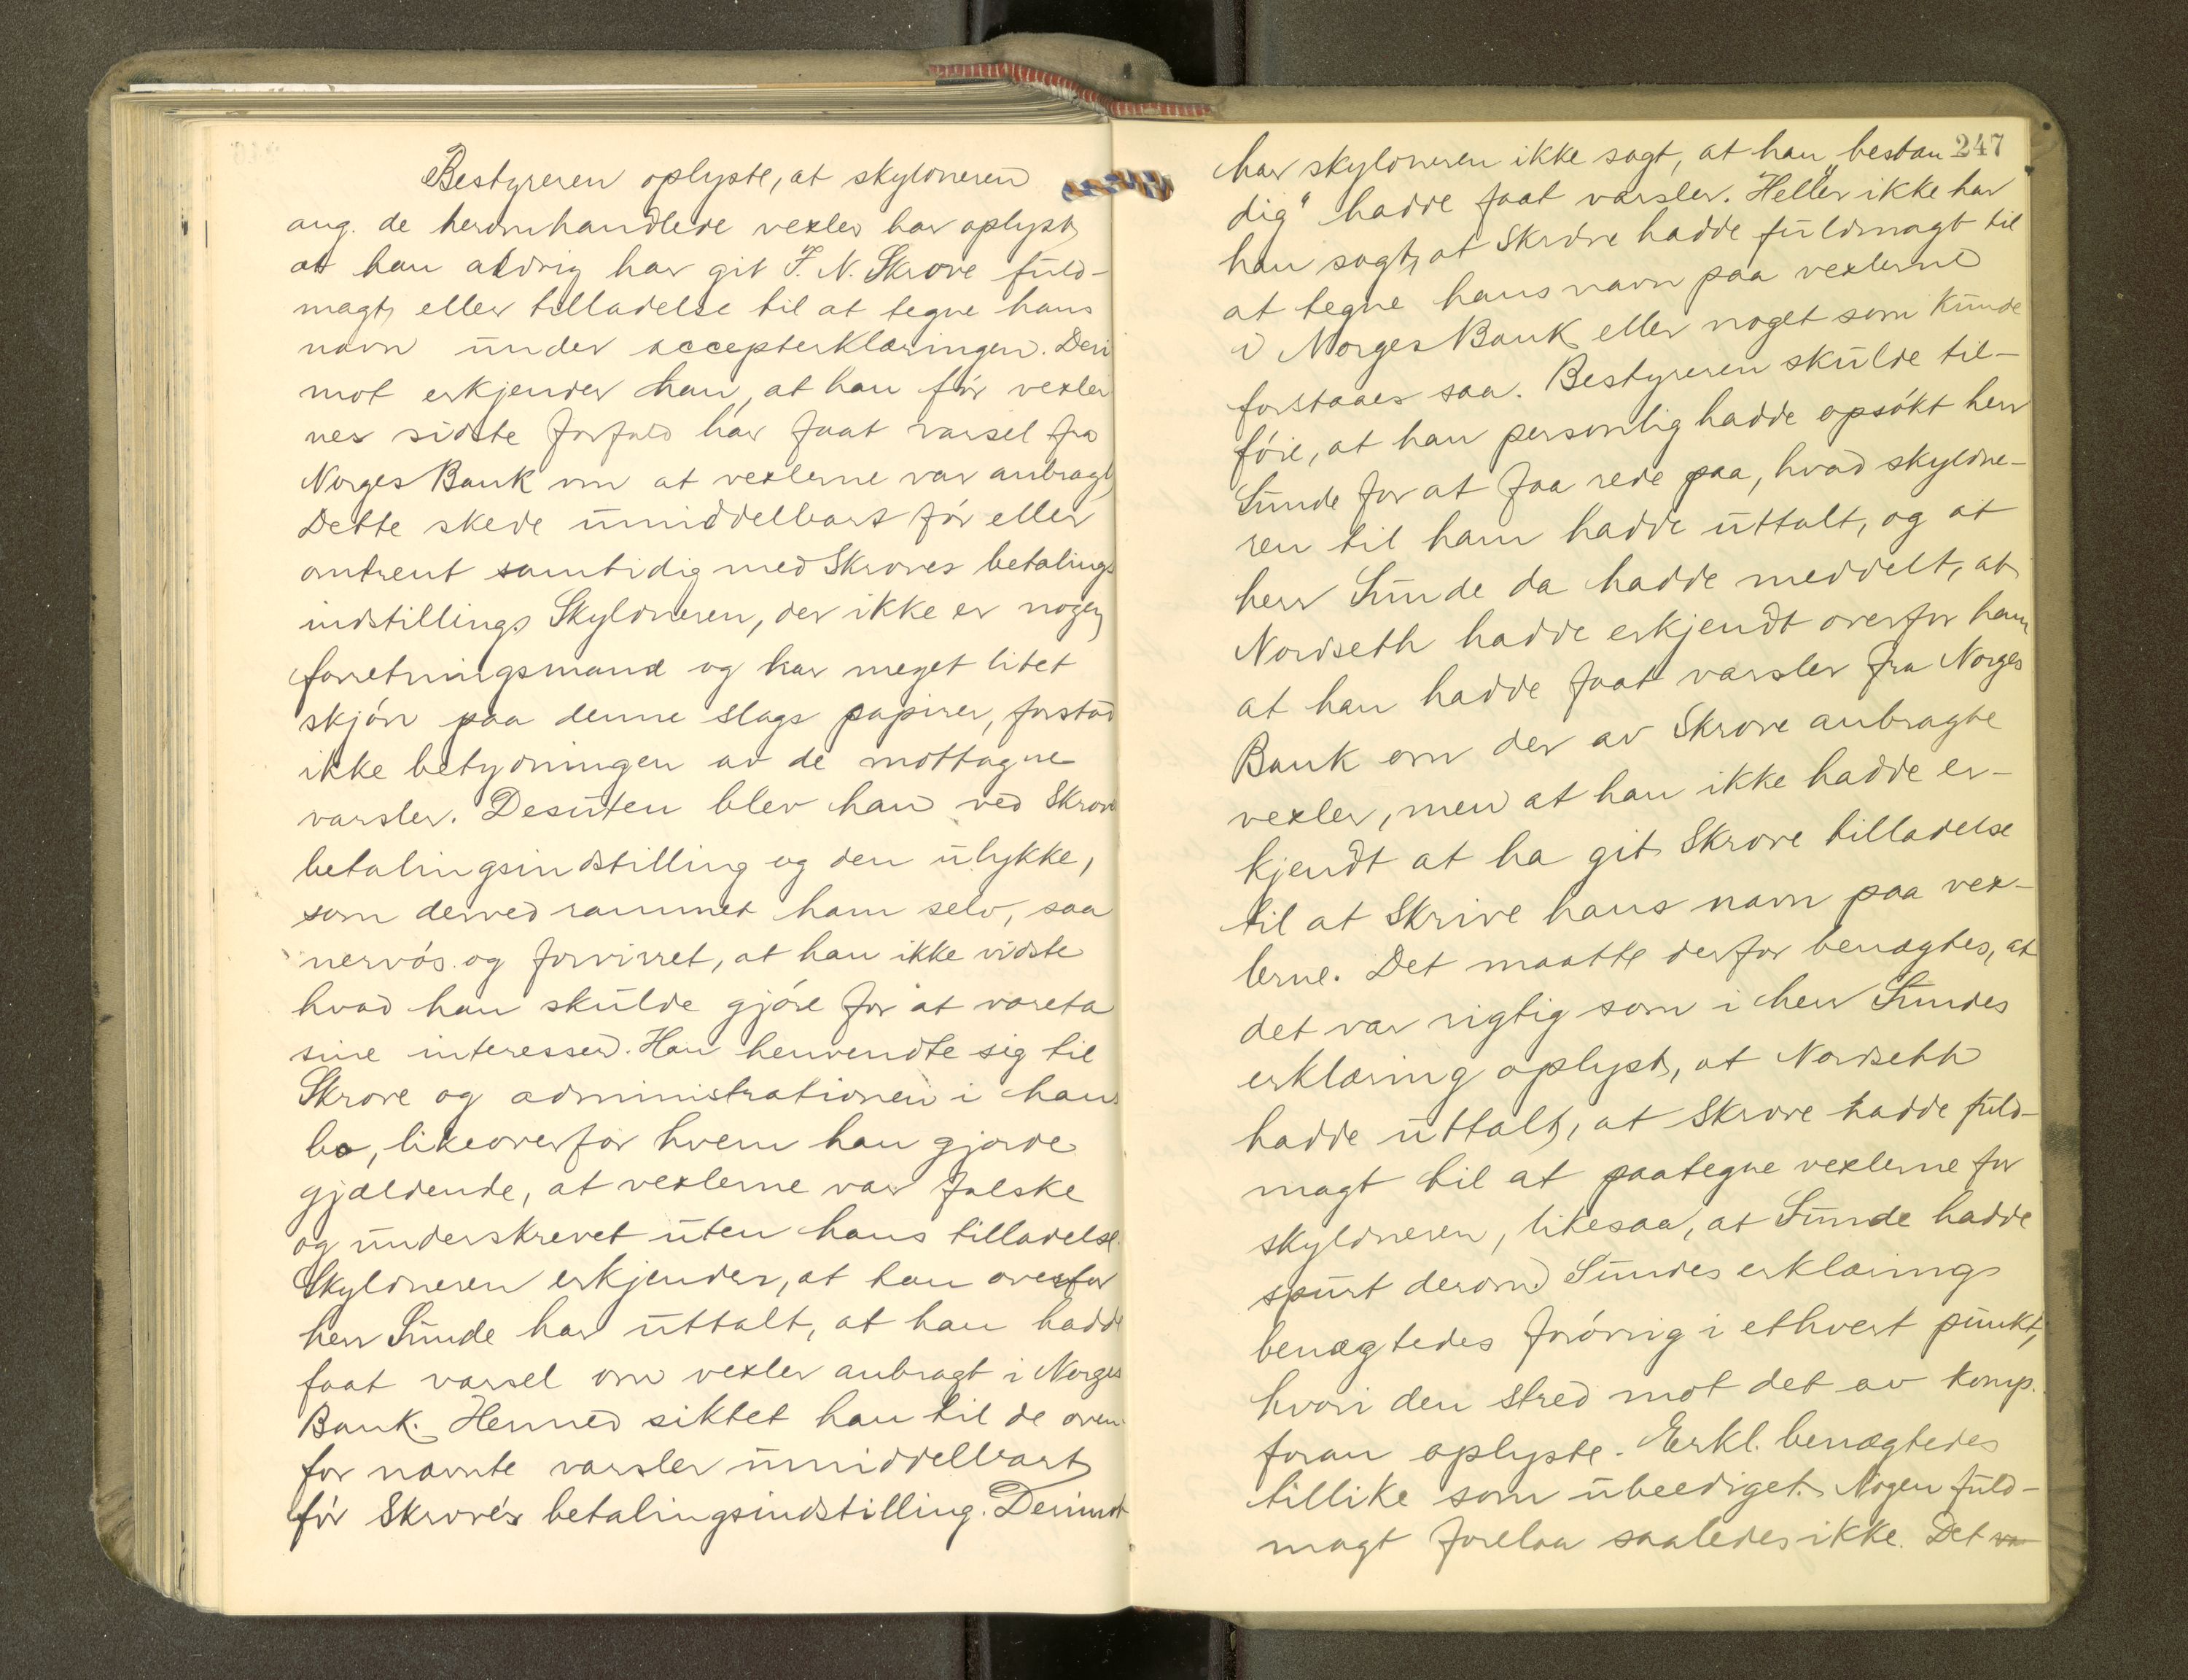 Bestyreren oplyste, at skyldneren
ang. de heromhandlede vexler har oplyst,
at han aldrig har git F. N. Skrove fuld-
magt eller tilladelse til at tegne hans
navn under accepterklæringen. Deri
mot erkjender han, at han før vexler
nes sidste forfald har faat varsel fra
Norges Bank om at vexlerne var anbragt,
Dette skede umiddelbart før eller
omtrent samtidig med Skroves betalings
indstilling. Skyldneren, der ikke er nogen
forretningsmand og har meget litet
skjøn paa denne slags papirer, forstod
ikke betydningen av de mottagne
varsler. Desuten blev han ved Skrove
betalingsindstilling og den ulykke,
som derved rammet ham selv, saa
nervøs og forvirret, at han ikke vidste
hvad han skulde gjøre for at vareta
sine interesser. Han henvendte sig til
Skrove og administrationen i hans
bo, likeoverfor hvem han gjorde
gjældende, at vexlerne var falske
og underskrevet uten hans tilladelse.
Skyldneren erkjender, at han overfor
herr Sunde har uttalt, at han hadde
faat varsel om vexler anbragt i Norges
Bank. Hermed siktet han til de oven-
for nævnte varsler umiddelbart
før Skrove's betalingsindstilling. Derimot
247
har skyldneren ikke sagt, at han "bestan
dig" hadde faat varsler. Heller ikke har
han sagt, at Skrove hadde fuldmagt til
at tegne hans navn paa vexlerne
i Norges Bank eller noget som kunde
forstaaes saa. Bestyreren skulde til-
føie, at han personlig hadde opsøkt herr
Sunde for at faa rede paa, hvad skyldne-
ren til ham hadde uttalt, og at
herr Sunde da hadde meddelt, at
Nordseth hadde erkjendt overfor ham
at han hadde faat varsler fra Norges
Bank om der av Skrove anbragte
vexler, men at han ikke hadde er-
kjendt at ha git Skrove tilladelse
til at skrive hans navn paa vex-
lerne. Det maatte derfor benægtes, at
det var rigtig som i herr Sundes
erklæring oplyst, at Nordseth
hadde uttalt, at Skrove hadde fuld-
magt til at paategne vexlerne for
skyldneren, likesaa, at Sunde hadde
spurt derom. Sundes erklæring
benægtedes forøvrig i ethvert punkt,
hvori den stred mot det av komp.
foran oplyste. Erkl. benægtedes
tillike som ubeediget. Nogen fuld-
magt forelaa saaledes ikke. Det va